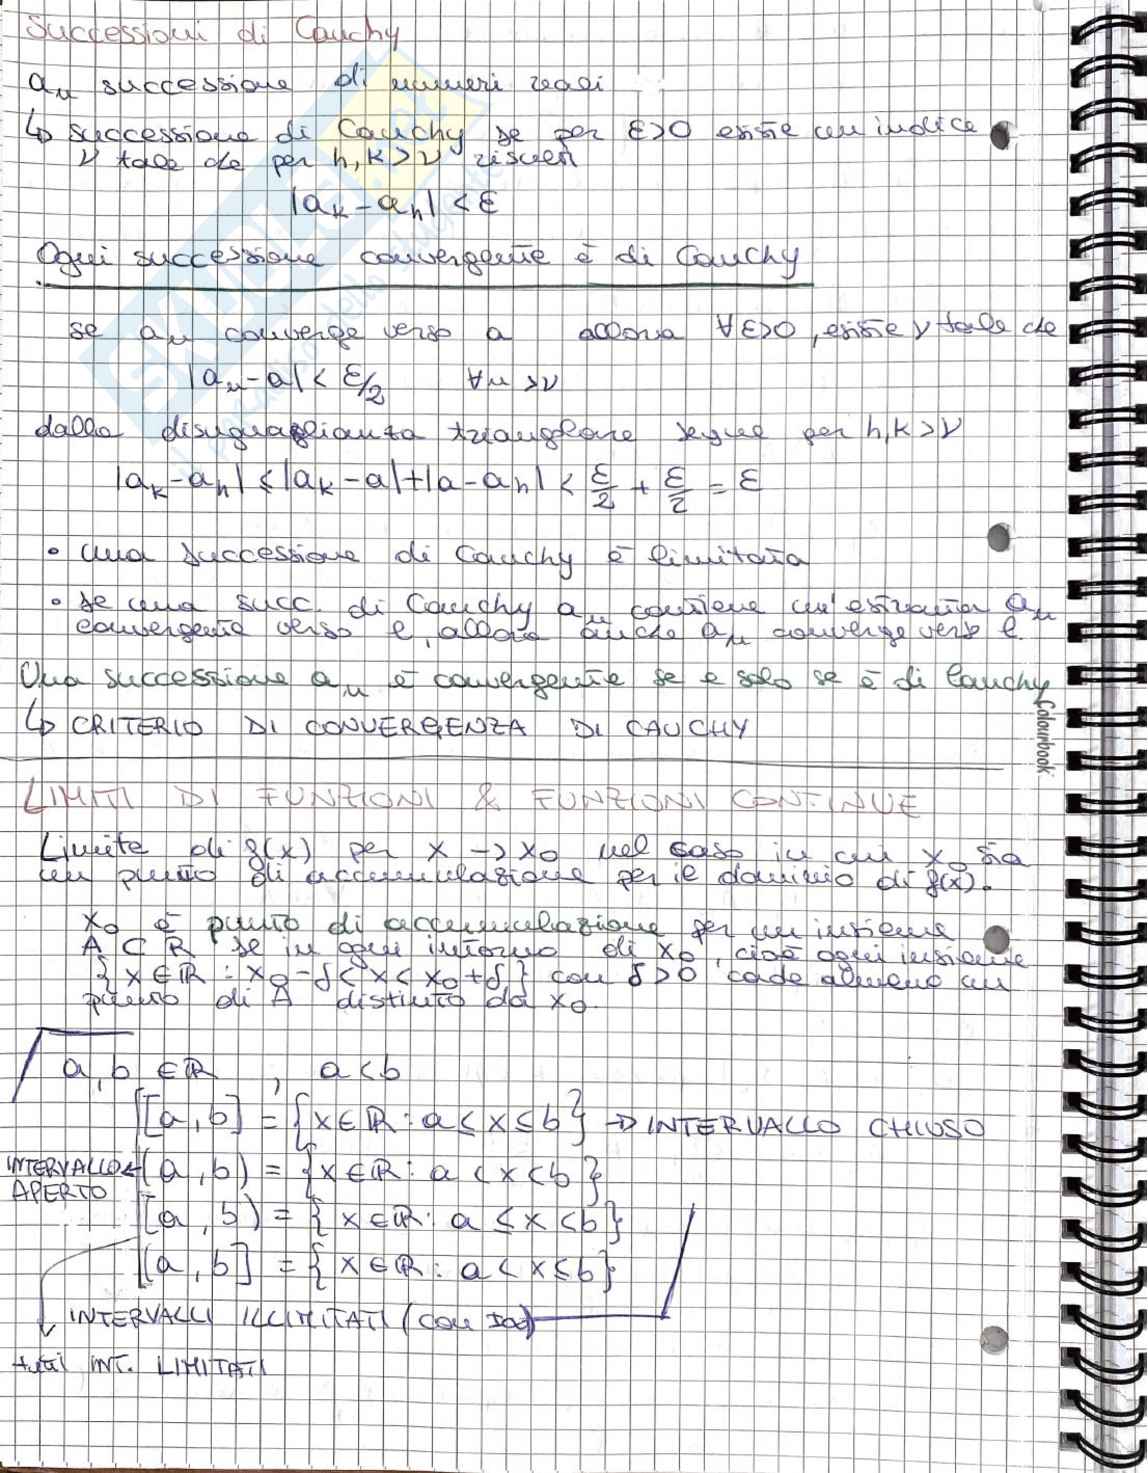 Successioni di Cauchy
aₙ successione di numeri reali
↳ successione di Cauchy se per ε>0 esiste un indice
ν tale che per h,k>ν risulti
|aₖ-aₕ| < ε
Ogni successione convergente è di Cauchy
se aₙ converge verso a allora ∀ε>0, esiste ν tale che
|aₙ-a| < ε/2 ∀n>ν
dalla disuguaglianza triangolare segue per h,k>ν
|aₖ-aₕ| ≤ |aₖ-a|+|a-aₕ| < ε/2 + ε/2 = ε
• una successione di Cauchy è limitata
• se una succ. di Cauchy aₙ contiene un'estratta aₙ
convergente verso l, allora anche aₙ converge verso l.
Una successione aₙ è convergente se e solo se è di Cauchy
↳ CRITERIO DI CONVERGENZA DI CAUCHY
Colourbook
LIMITI DI FUNZIONI & FUNZIONI CONTINUE
Limite di f(x) per x → x₀ nel caso in cui x₀ sia
un punto di accumulazione per il dominio di f(x).
x₀ è punto di accumulazione per un insieme
A ⊂ R se in ogni intorno di x₀, cioè ogni insieme
{x∈R : x₀-δ<x<x₀+δ} con δ>0 cade almeno un
punto di A distinto da x₀.
a, b ∈ R , a<b
[a,b] = {x∈R : a≤x≤b} → INTERVALLO CHIUSO
INTERVALLO APERTO ← (a,b) = {x∈R : a<x<b}
[a,b) = {x∈R : a≤x<b}
(a,b] = {x∈R : a<x≤b}
INTERVALLI ILLIMITATI (con ±∞)
tutti INT. LIMITATI